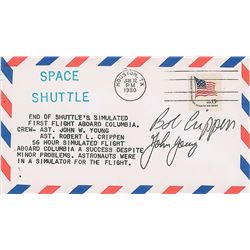 SPACE
SHUTTLE
HOUSTON, TX
PM
1980
END OF SHUTTLE'S SIMULATED
FIRST FLIGHT ABOARD COLUMBIA.
CREW- AST. JOHN W. YOUNG
AST. ROBERT L. CRIPPEN
56 HOUR SIMULATED FLIGHT
ABOARD COLUMBIA A SUCCESS DESPITE
MINOR PROBLEMS. ASTRONAUTS WERE
IN A SIMULATOR FOR THE FLIGHT.
Bob Crippen
John Young